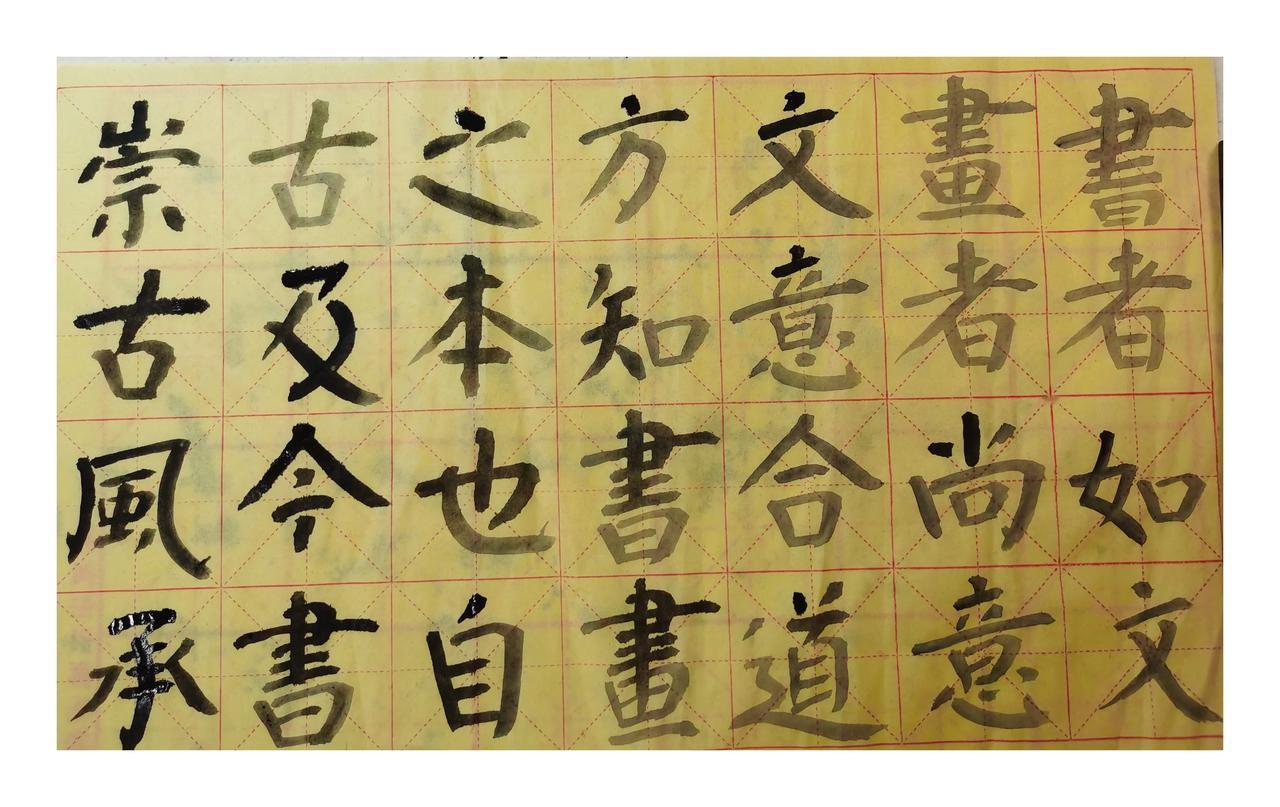 書者如文
畫者尚意
文意合道
方知書畫
之本也自
古及今書
崇古風承